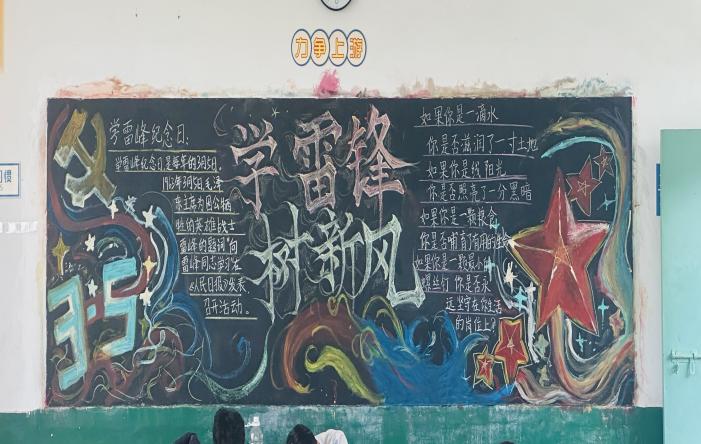 力争上游
习惯
学雷锋纪念日:
学雷锋纪念日是每年的3月5日。
1963年3月5日毛泽
东主席为因公牺
牲的英雄战士
雷锋的题词"向
雷锋同志学习"在
《人民日报》发表
召开活动。
3·5
学雷锋
树新风
如果你是一滴水
你是否滋润了一寸土地
如果你是线阳光
你是否照亮了一分黑暗
如果你是一颗粮食
你是否哺育了有用的生命
如果你是一颗最小的
螺丝钉 你是否永
远坚守在你生活
的岗位上?